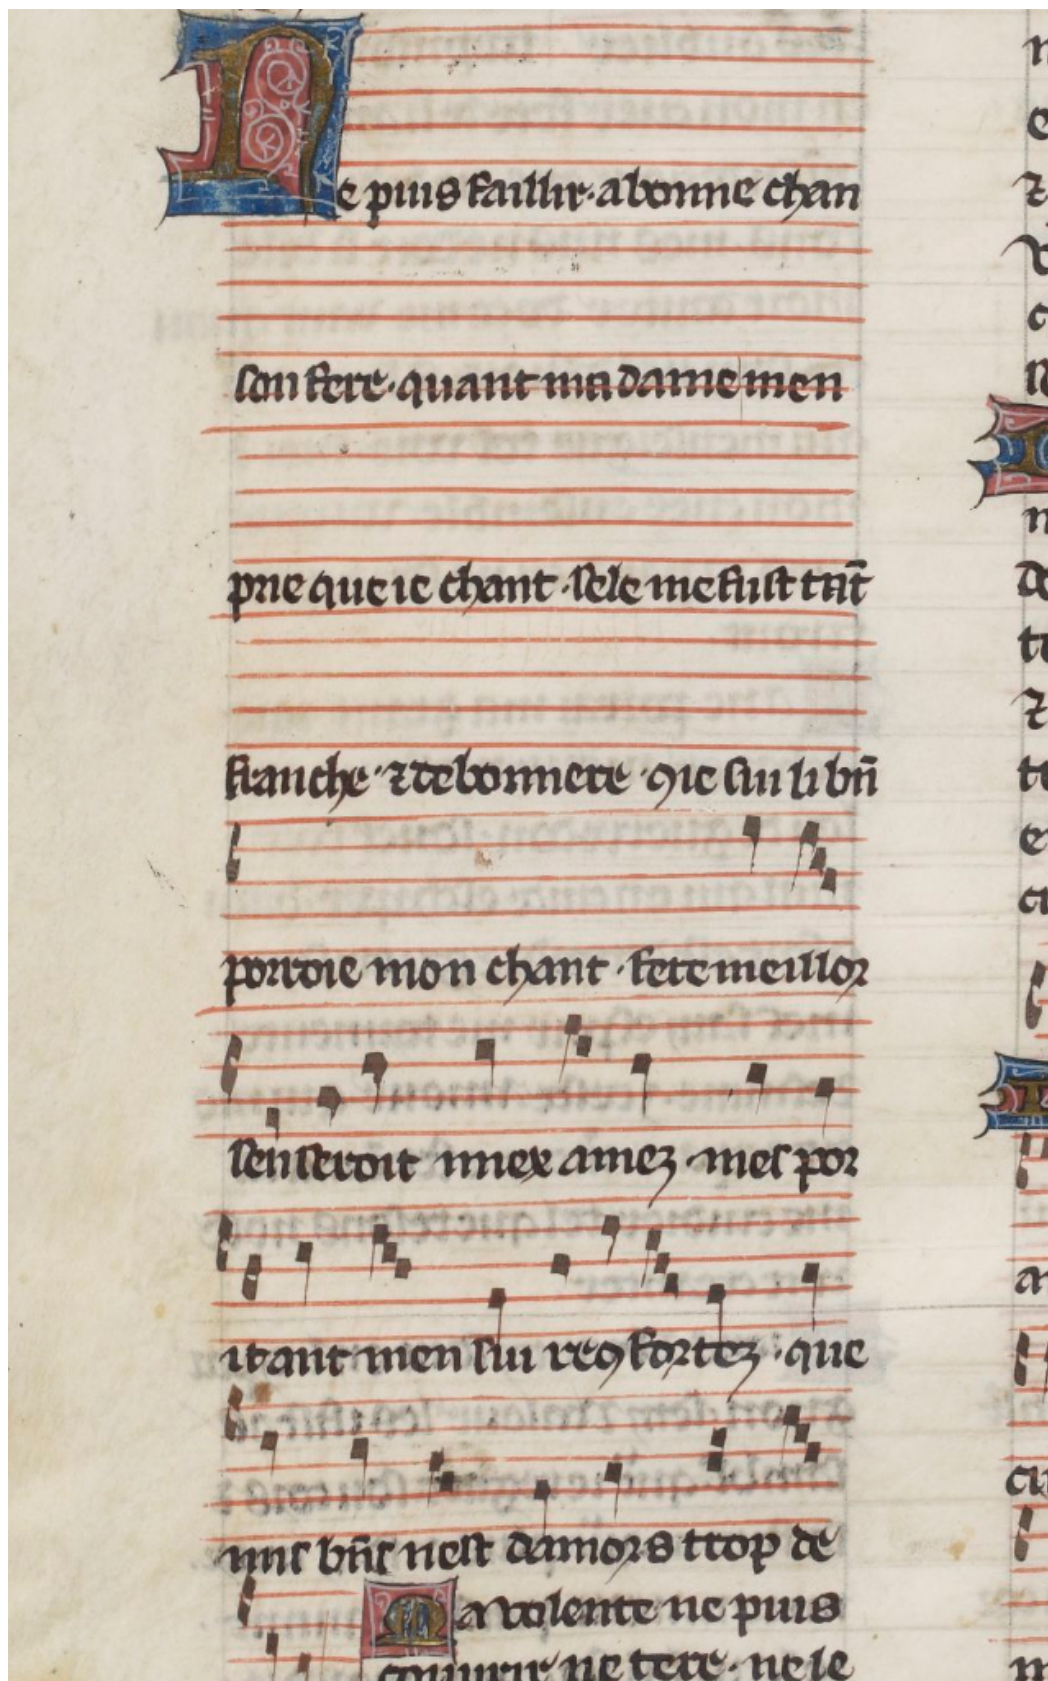 Ne puis faillir · a bonne chan
son fere · quant ma dame men
prie que ie chant · sele me fust tāt
franche · ⁊ debonnere · ꝯ ie sui li bn̄
porroie mon chant · fere meillor
sen seroit miex amez · mes por
itant men sui reꝯfortez · que
nus bn̄s nest damors trop de
Ma volente ne puis
couurir ne tere · ne le